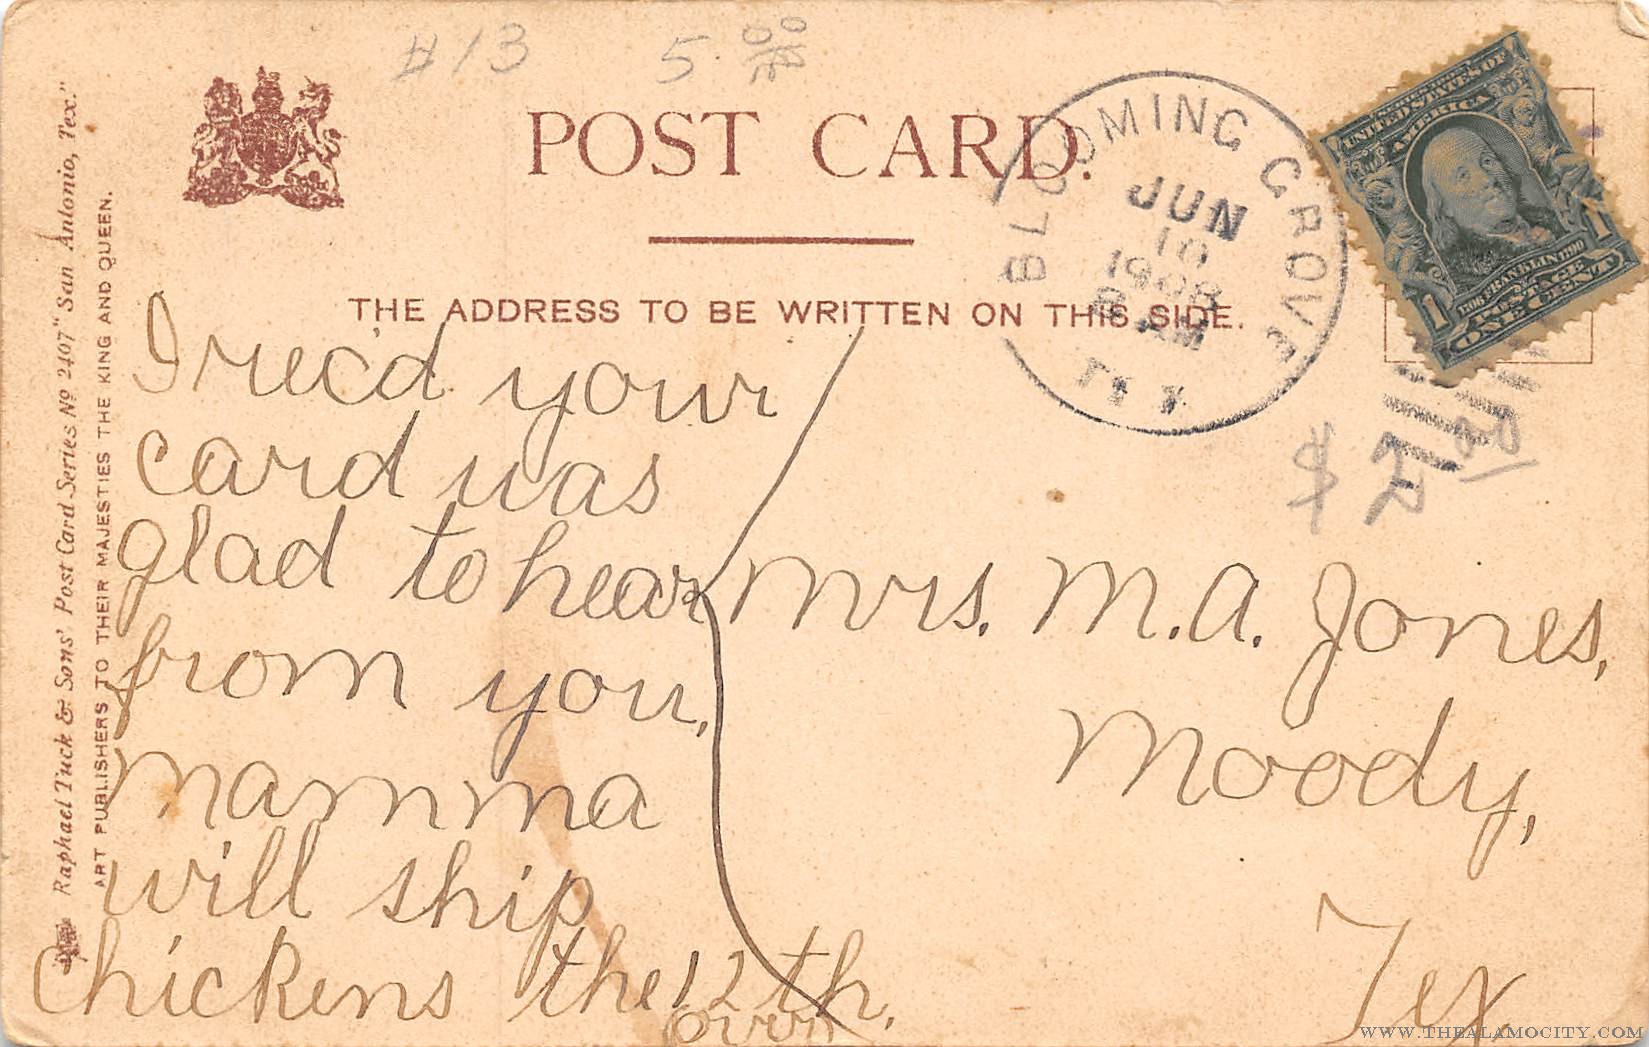 #13 5.00
POST CARD.
THE ADDRESS TO BE WRITTEN ON THIS SIDE.
Raphael Tuck & Sons' Post Card Series No 2407 "San Antonio, Tex."
ART PUBLISHERS TO THEIR MAJESTIES THE KING AND QUEEN.
BLOOMING GROVE
JUN
10
1908
8 AM
TEX
UNITED STATES OF
AMERICA
1706 FRANKLIN 1790
POSTAGE
1 ONE CENT 1
$
I rec'd your
card was
glad to hear
from you,
mamma
will ship
chickens the 12th.
(over)
Mrs. M.A. Jones,
Moody,
Tex
WWW.THEALAMOCITY.COM